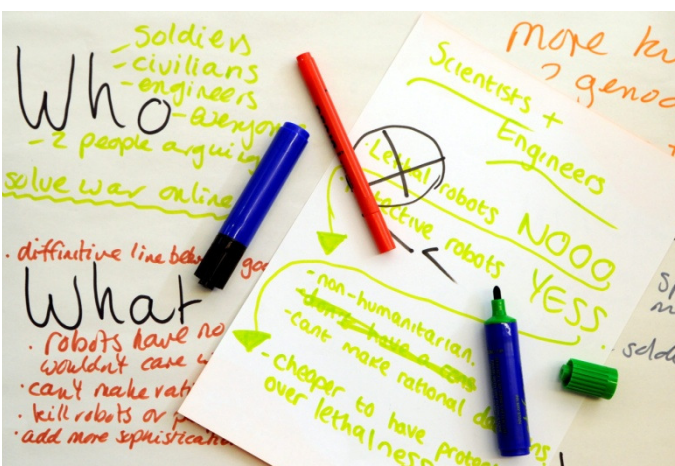 Who
soldiers
- civilians
- engineers
- everyon
- 2 people arguing
solve war online
. diffinitive line betw goo
What
. robots have no
wouldn't care w
. can't make rati
. kill robots or p
. add more sophisticat
Scientists +
Engineers
. Lethal robots NOOO
. protective robots YESS
- non-humanitarian.
- don't have a cons
- cant make rational d ons
- cheaper to have protec
over lethalness
more
? genoc
sold